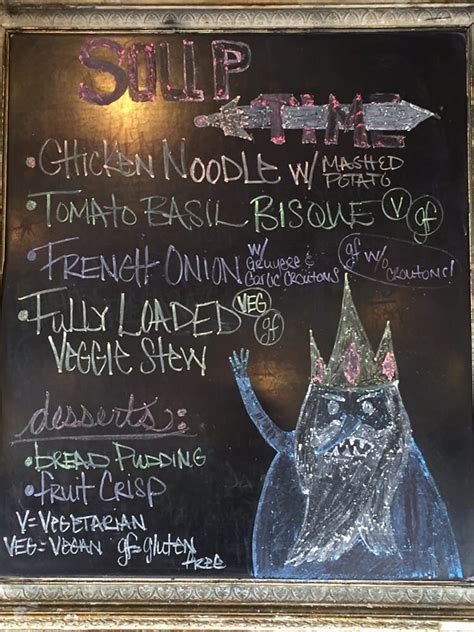 SOUP
TIME
• CHICKEN NOODLE W/ MASHED
POTATO
• TOMATO BASIL BISQUE V gf
• FRENCH ONION W/ GRUYERE & GARLIC CROUTONS gf W/O CROUTONS!
• FULLY LOADED VEG
VEGGIE STEW gf
desserts:
• BREAD PUDDING
• FRUIT CRISP
V=VEGETARIAN
VEG=VEGAN gf=gluten
free